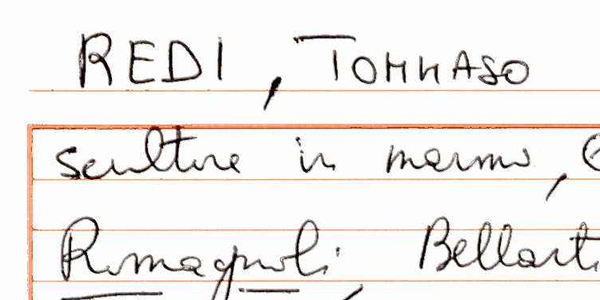 REDI, TOMMASO
scultore in marmo,
Romagnoli Bellart